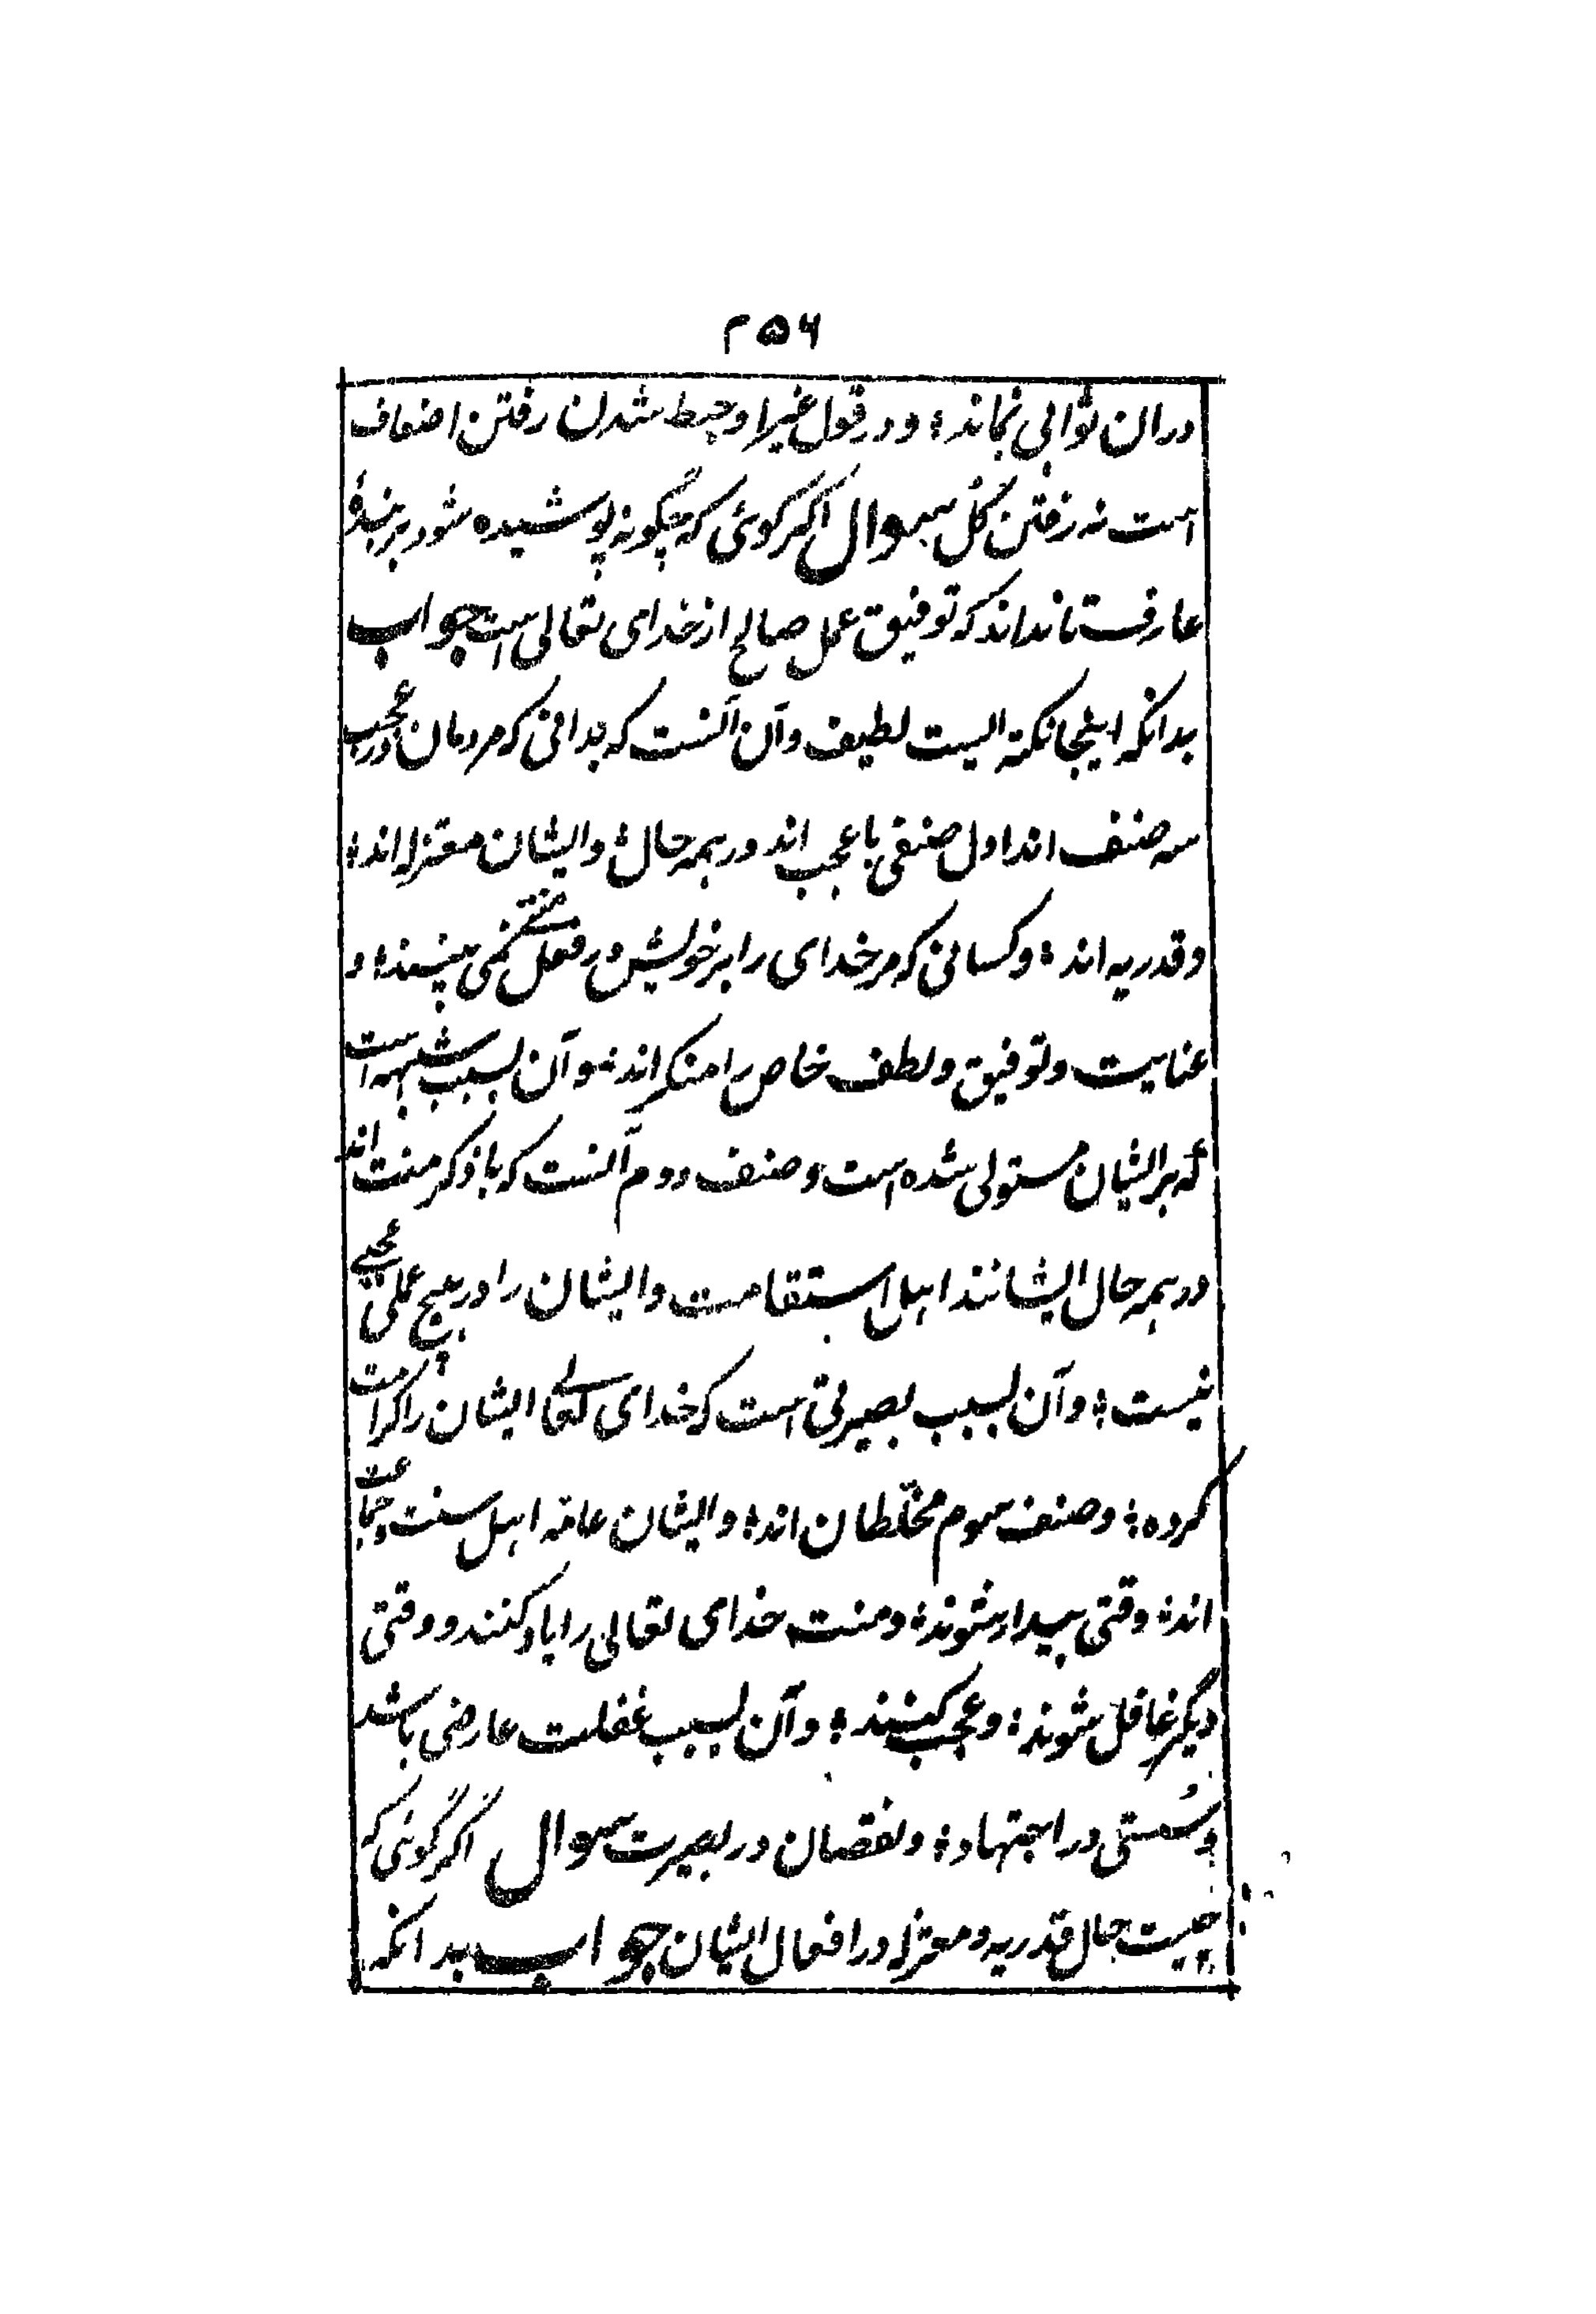 ۲۵۶
دران ثوابی نماند؛ و در قول غیر او حبط شدن رفتن اضعاف
است نه رفتن کل سوال اگر گوئی که چگونه پوشیده شود بر بندهٔ
عارف تا نداند که توفیق عمل صالح از خدای تعالی است جواب
بدانکه اینجا نکته ایست لطیف و آن آنست که بدانی که مردمان در عجب
سه صنف اند اول صنفی با عجب اند در همه حال؛ و ایشان معتزله اند؛
و قدریه اند؛ و کسانی که مر خدای را بر خویش در فعل منتی نمی بینند؛ و
عنایت و توفیق و لطف خاص را منکر اند؛ و آن بسبب شبهه است
که بر ایشان مستولی شده است و صنف دوم آنست که با ذکر منت اند
در همه حال ایشانند اهل استقامت و ایشان را در هیچ عملی عجبی
نیست؛ و آن بسبب بصیرتی است که خدای تعالی ایشان را کرامت
کرده؛ و صنف سوم مخلّطان اند؛ و ایشان عامّه اهل سنت و جماعت
اند؛ وقتی بیدار شوند؛ و منت خدای تعالی را یاد کنند و وقتی
دیگر غافل شوند؛ و عجب کنند؛ و آن بسبب غفلت عارضی باشد
و سُستی در اجتهاد؛ و نقصان در بصیرت سوال اگر گوئی که
چیست حال قدریه و معتزله در افعال ایشان جواب بدانکه